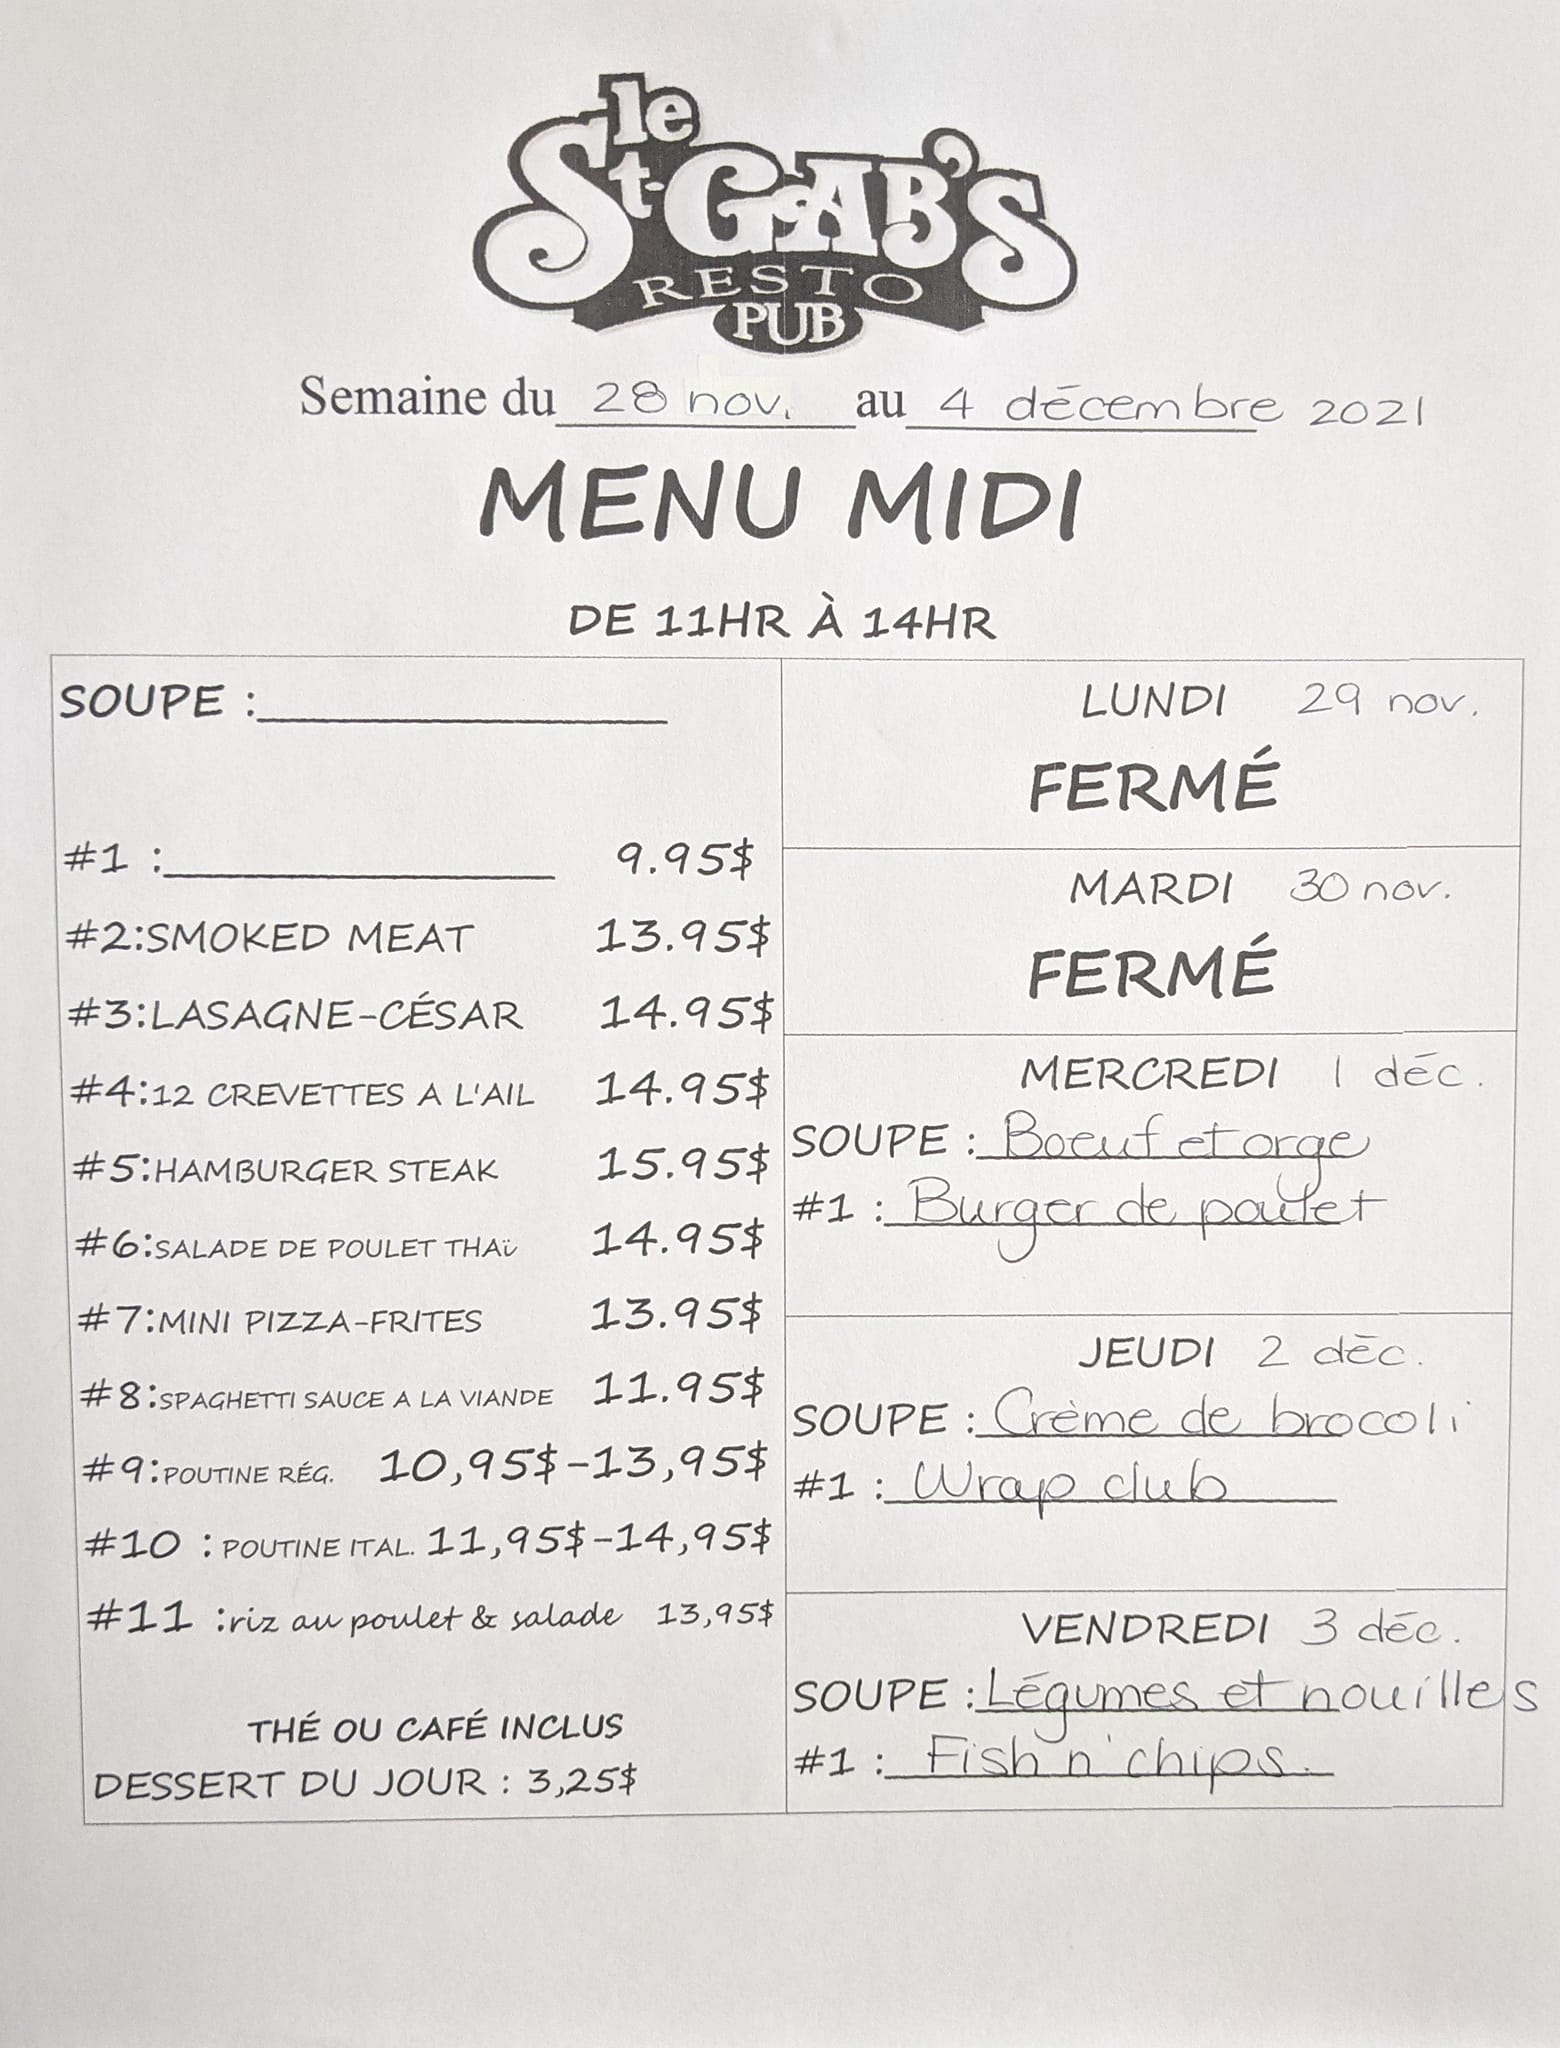 le
St-GAB'S
RESTO
PUB
Semaine du 28 nov. au 4 décembre 2021
MENU MIDI
DE 11HR À 14HR
SOUPE :
#1 : 9.95$
#2:SMOKED MEAT 13.95$
#3:LASAGNE-CÉSAR 14.95$
#4:12 CREVETTES A L'AIL 14.95$
#5:HAMBURGER STEAK 15.95$
#6:SALADE DE POULET THAï 14.95$
#7:MINI PIZZA-FRITES 13.95$
#8:SPAGHETTI SAUCE A LA VIANDE 11.95$
#9:POUTINE RÉG. 10,95$-13,95$
#10 : POUTINE ITAL. 11,95$-14,95$
#11 :riz au poulet & salade 13,95$
THÉ OU CAFÉ INCLUS
DESSERT DU JOUR : 3,25$
LUNDI 29 nov.
FERMÉ
MARDI 30 nov.
FERMÉ
MERCREDI 1 déc.
SOUPE : Boeuf et orge
#1 : Burger de poulet
JEUDI 2 déc.
SOUPE : Crème de brocoli
#1 : Wrap club
VENDREDI 3 déc.
SOUPE : Légumes et nouilles
#1 : Fish n' chips.